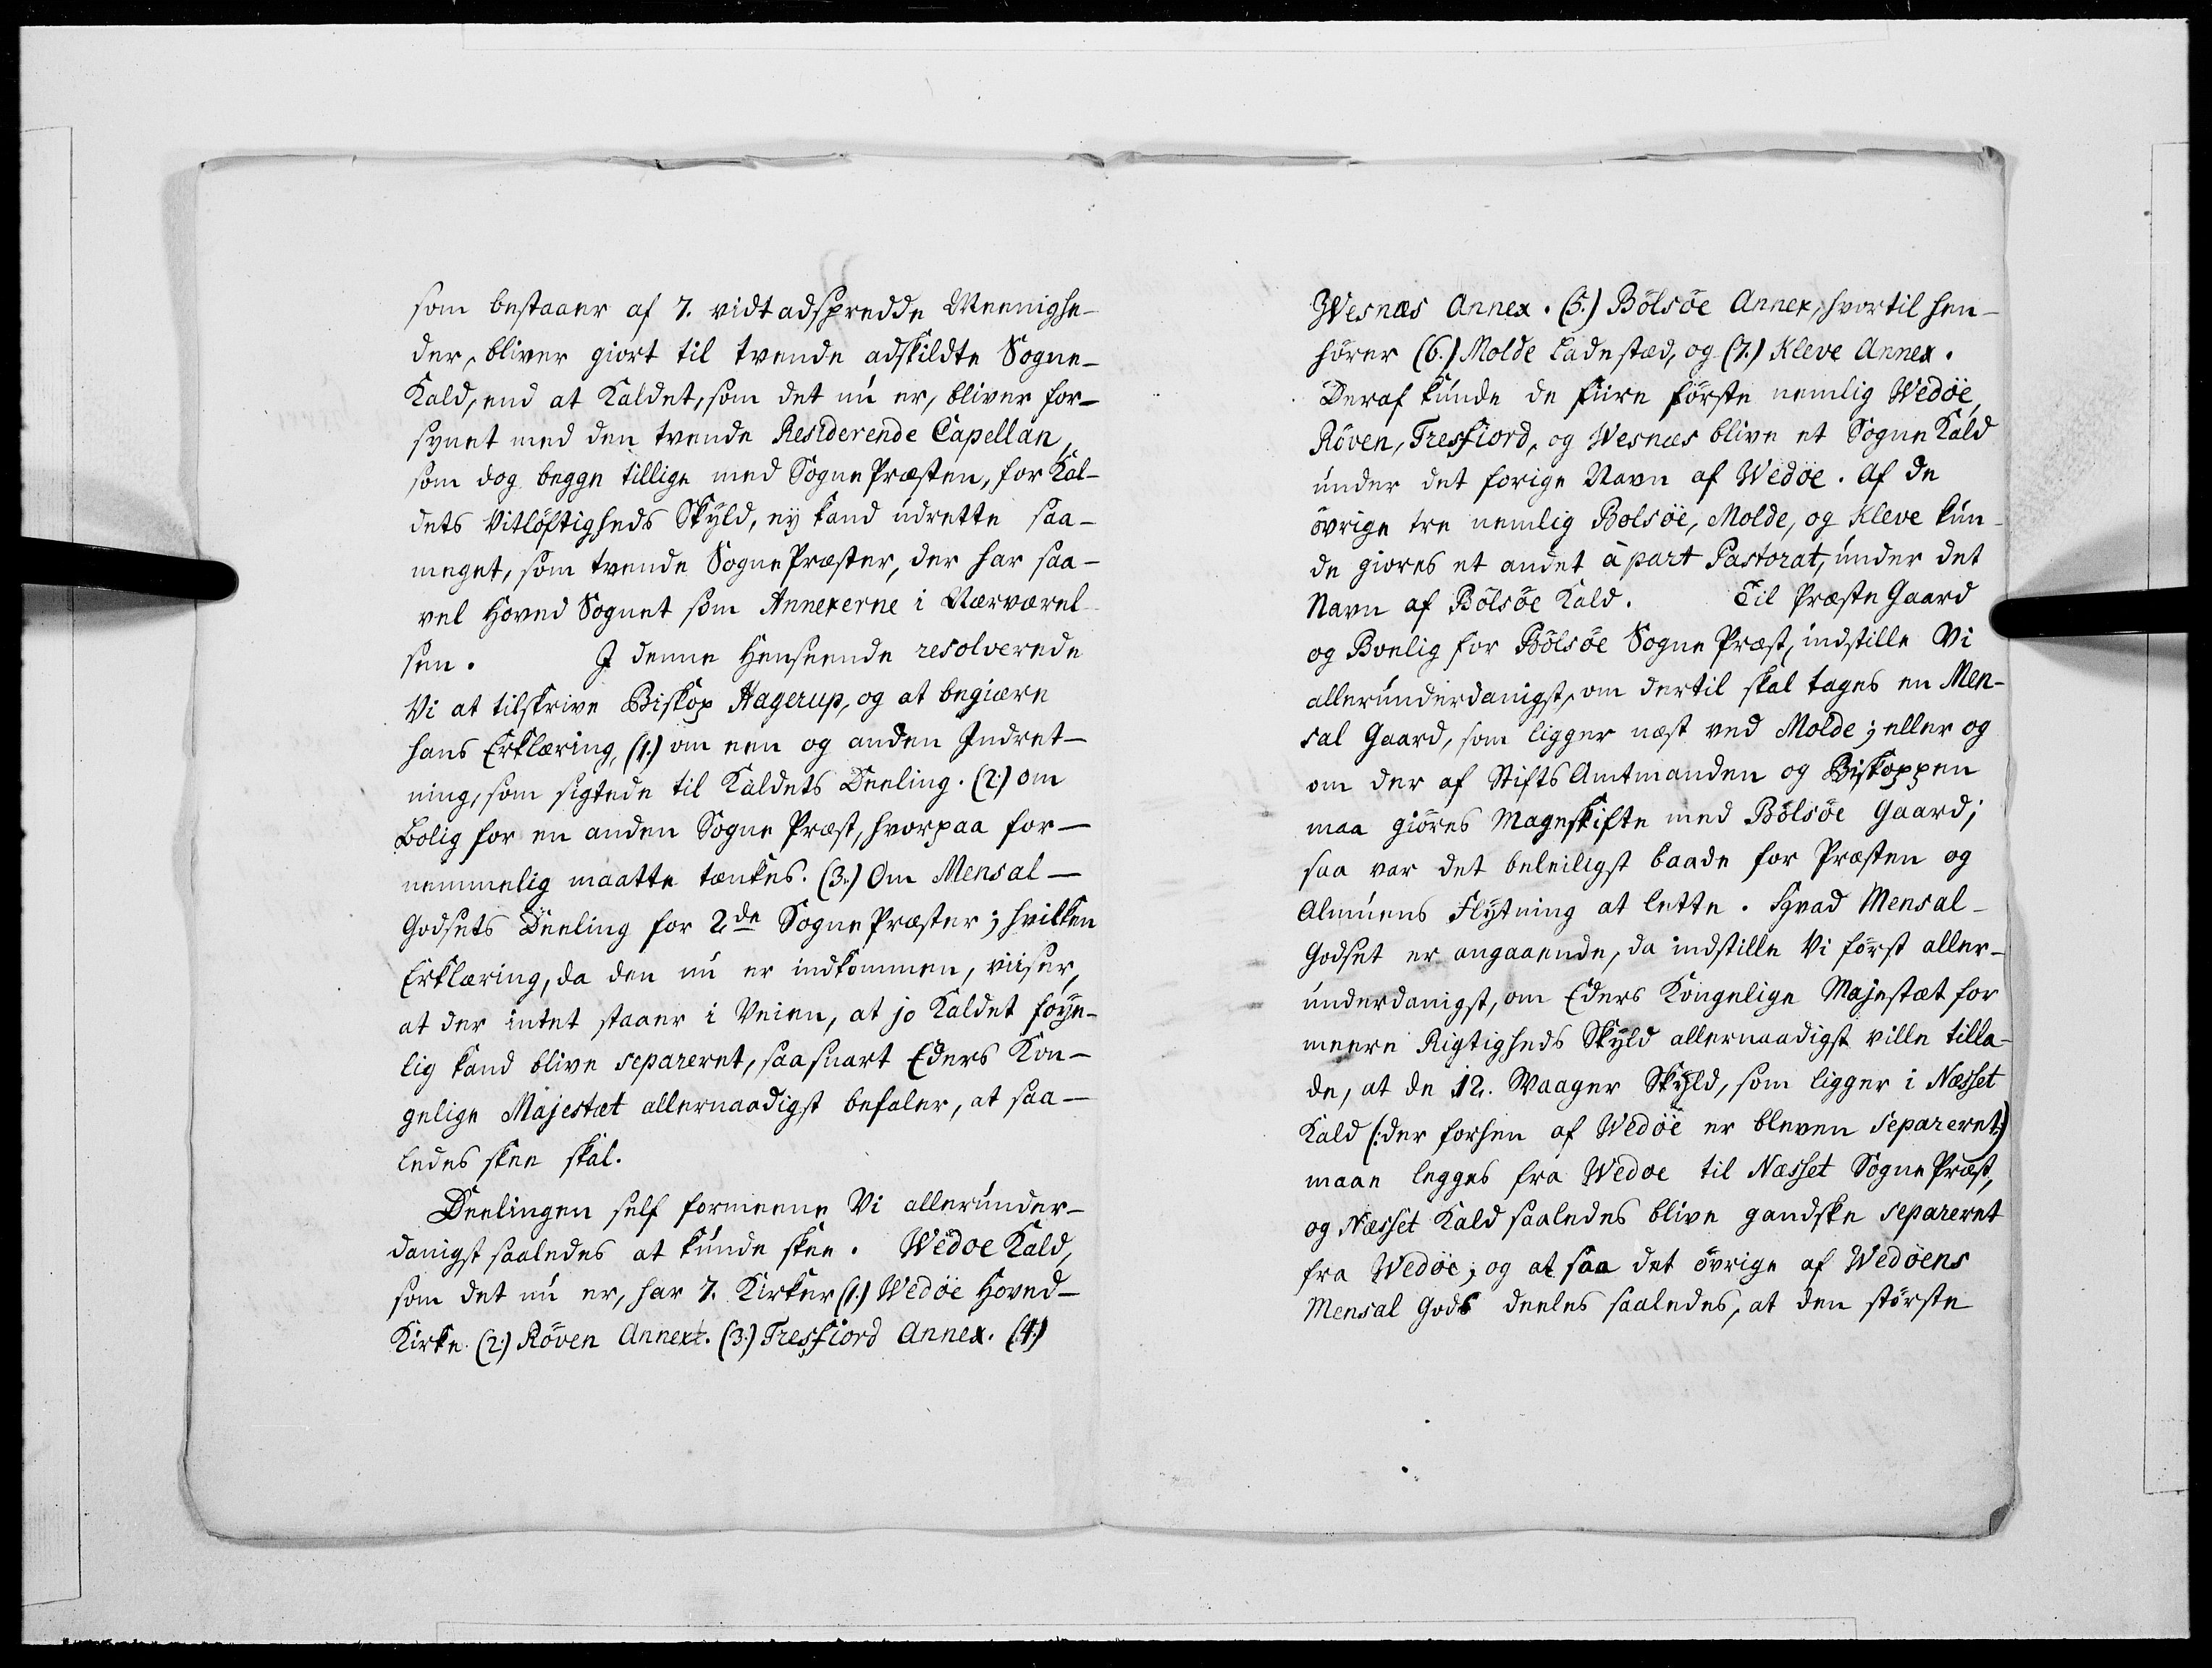 som bestaaer af 7. vidt adspredde Meenighe-
der, bliver giort til tvende adskildte Sogne-
Kald, end at Kaldet, som det nu er, bliver for-
synet med den tvende Residerende Capellan,
som dog begge tillige med Sogne Præsten, for Kal-
dets Vitløftigheds Skyld, ey kand udrette saa-
meget, som tvende Sogne Præster, der har saa-
vel Hoved Sognet som Annexerne i Nærværel-
sen. I denne Henseende resolverede
Vi at tilskrive Biskop Hagerup, og at begiære
hans Erklæring, (1.) om een og anden Indret-
ning, som sigtede til Kaldets Deeling. (2.) om
Bolig for en anden Sogne Præst, hvorpaa for-
nemmelig maatte tænkes. (3.) Om Mensal-
Godsets Deeling for 2de Sogne Præster; hvilken
Erklæring, da den nu er indkommen, viiser,
at der intet staaer i Veien, at jo Kaldet føye-
lig kand blive separeret, saasnart Eders Kon-
gelige Majestæt allernaadigst befaler, at saa-
ledes skee skal.
Deelingen self formeene Vi allerunder-
danigst saaledes at kunde skee. Wedøe Kald,
som det nu er, har 7. Kirker (1.) Wedøe Hoved-
Kirke. (2.) Röven Annext. (3.) Tresfiord Annex. (4.)
Wesnæs Annex. (5.) Bölsöe Annex, hvortil hen-
hører (6.) Molde Ladestæd, og (7.) Kleve Annex.
Deraf kunde de fiire første nemlig Wedöe,
Röven, Tresfiord, og Wesnæs blive et Sogne Kald
under det forige Navn af Wedöe. Af de
øvrige tre nemlig Bolsöe, Molde, og Kleve kun-
de giøres et andet à part Pastorat, under det
Navn af Bölsöe Kald. Til Præste Gaard
og Boelig for Bölsöe Sogne Præst, indstille Vi
allerunderdanigst, om dertil skal tages en Men-
sal Gaard, som ligger næst ved Molde; eller og
om der af Stifts Amtmanden og Biskoppen
maa giøres Mageskifte med Bölsöe Gaard;
saa var det beleiligst baade for Præsten og
Almuens Flytning at lette. Hvad Mensal-
Godset er angaaende, da indstille Vi först aller-
underdanigst, om Eders Kongelige Majestæt for
meere Rigtigheds Skyld allernaadigst ville tilla-
de, at de 12. Waager Skyld, som ligger i Næsset
Kald (:der forhen af Wedöe er bleven separeret:)
maae legges fra Wedøe til Næsset Sogne Præst,
og Næsset Kald saaledes blive gandske separeret
fra Wedöe; og at saa det øvrige af Wedøens
Mensal Gods deeles saaledes, at den störste